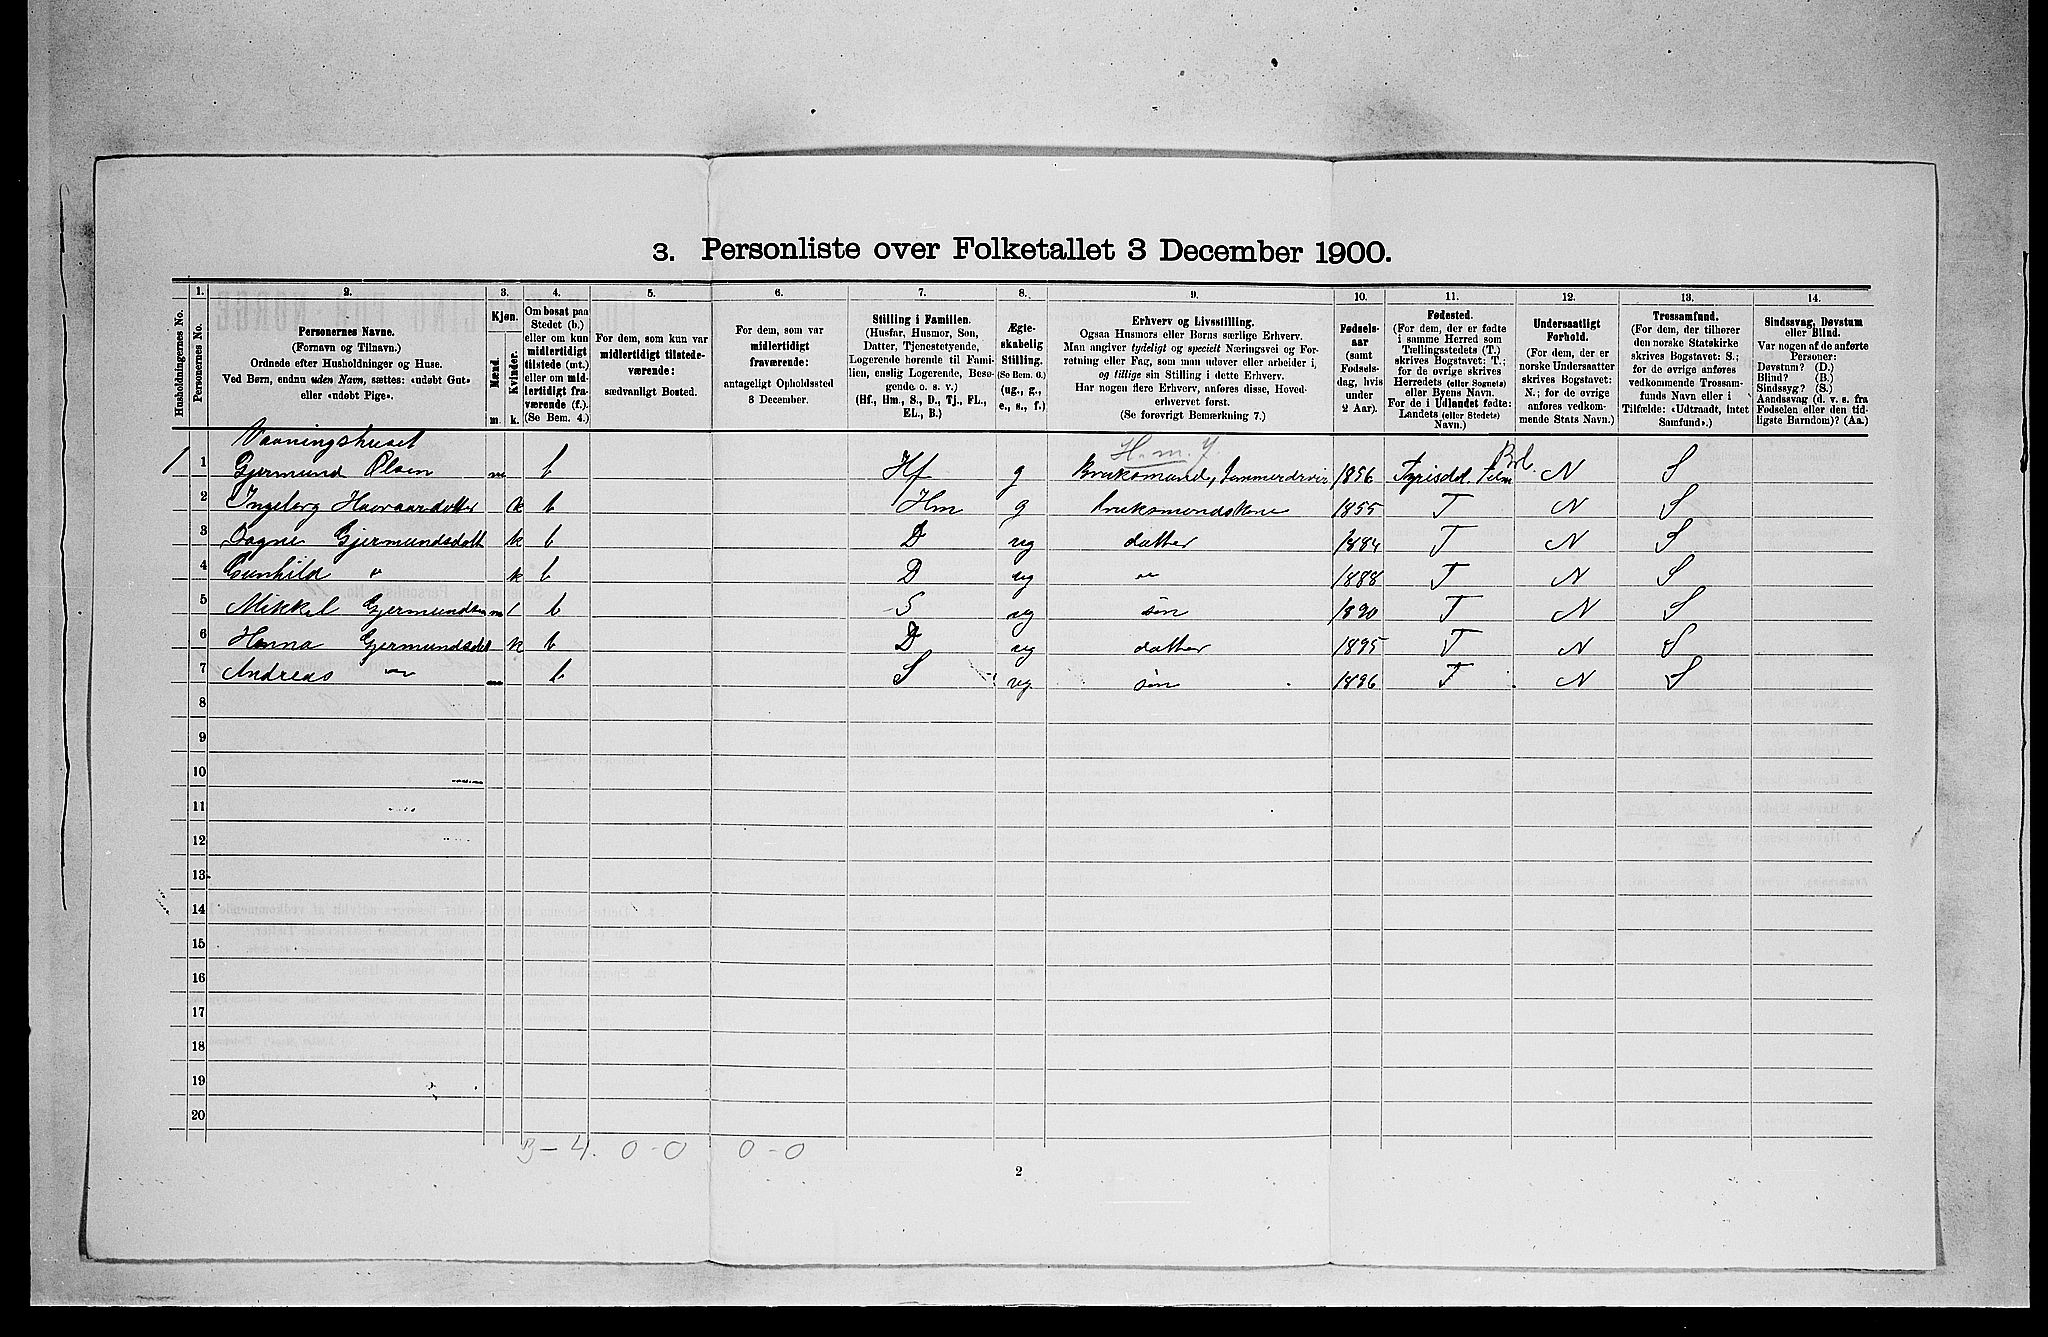 3. Personliste over Folketallet 3 December 1900.
1. 2. 3. 4. 5. 6. 7. 8. 9. 10. 11. 12. 13. 14.
Husholdningernes No.
Personernes No.
Personernes Navne.
(Fornavn og Tilnavn.)
Ordnede efter Husholdninger og Huse.
Ved Børn, endnu uden Navn, sættes: «udøbt Gut»
eller «udøbt Pige».
Kjøn.
Mænd.
Kvinder.
m. k.
Om bosat paa
Stedet (b.)
eller om kun
midlertidigt
tilstede (mt.)
eller om mid-
lertidigt fra-
værende (f.)
(Se Bem. 4.)
For dem, som kun var
midlertidigt tilstede-
værende:
sædvanligt Bosted.
For dem, som var
midlertidigt
fraværende:
antageligt Opholdssted
3 December.
Stilling i Familien.
(Husfar, Husmor, Søn,
Datter, Tjenestetyende,
Logerende hørende til Fami-
lien, enslig Logerende, Besø-
gende o. s. v.)
(Hf., Hm., S., D., Tj., FL.,
EL., B.)
Ægte-
skabelig
Stilling.
(Se Bem. 6.)
(ug., g.,
e., s., f.)
Erhverv og Livsstilling.
Ogsaa Husmors eller Børns særlige Erhverv.
Man angiver tydeligt og specielt Næringsvei og For-
retning eller Fag, som man udøver eller arbeider i,
og tillige sin Stilling i dette Erhverv.
Har nogen flere Erhverv, anføres disse, Hoved-
erhvervet først.
(Se forøvrigt Bemærkning 7.)
Fødsels-
aar
(samt
Fødsels-
dag, hvis
under
2 Aar).
Fødested.
(For dem, der er fødte
i samme Herred som
Tællingsstedets (T.)
skrives Bogstavet: T.;
for de øvrige skrives
Herredets (eller Sognets)
eller Byens Navn.
For de i Udlandet fødte:
Landets (eller Stedets)
Navn.)
Undersaatligt
Forhold.
(For dem, der er
norske Undersaatter
skrives Bogstavet:
N.; for de øvrige
anføres vedkom-
mende Stats Navn.)
Trossamfund.
(For dem, der tilhører
den norske Statskirke
skrives Bogstavet: S.;
for de øvrige anføres
vedkommende Trossam-
funds Navn eller i
Tilfælde: «Udtraadt, intet
Samfund».)
Sindssvag, Døvstum
eller Blind.
Var nogen af de anførte
Personer:
Døvstum? (D.)
Blind? (B.)
Sindssyg? (S.)
Aandssvag (d. v. s. fra
Fødselen eller den tid-
ligste Barndom)? (Aa.)
Vaaningshuset H.m.
1 1 Gjermund Olsen m b Hf g Bruksmand, 1856 Tyrisdal N S
2 Ingeborg Haavaardatter k b Hm g bruksmandskone 1855 T N S
3 Gjermundsdatt k b D ug datter 1884 T N S
4 Gunhild " k b D ug " 1888 T N S
5 Mikkel Gjermundsen m b S ug søn 1890 T N S
6 Hanna Gjermundsdat k b D ug datter 1895 T N S
7 Andreas " m b S ug søn 1896 T N S
8
9
10
11
12
13
14
15
16
17
18
19
20
3-4. 0-0 0-0
2